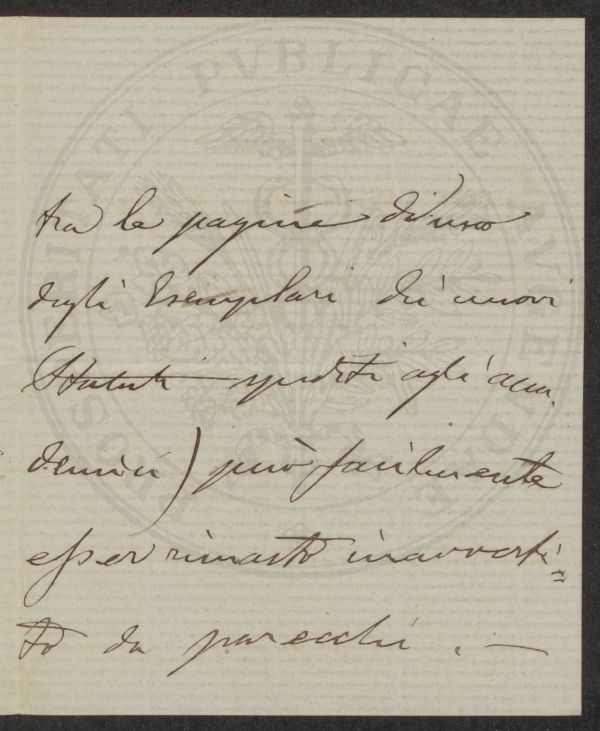 PROSPERITATI PVBLICAE AVGENDAE
tra le pagine di uno
degli Esemplari dei nuovi
Statuti spediti agli acca-
demici) può facilmente
esser rimasto inavverti=
to da parecchi. —